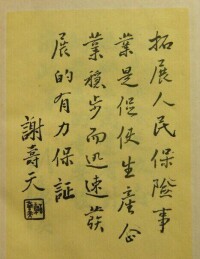 拓展人民保險事
業是促使生產企
業穩步而迅速發
展的有力保証
謝壽天